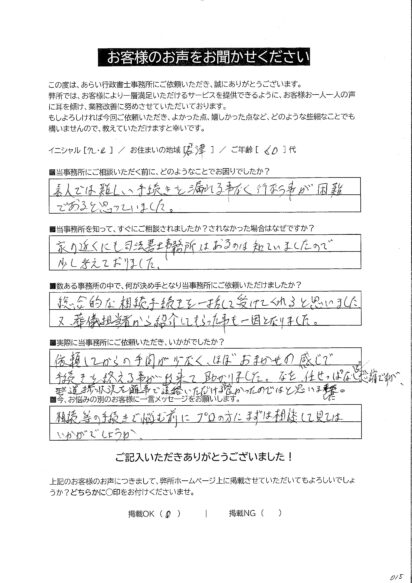 お客様のお声をお聞かせください
この度は、あらい行政書士事務所にご依頼いただき、誠にありがとうございます。
弊所では、お客様により一層満足いただけるサービスを提供できるように、お客様お一人一人の声
に耳を傾け、業務改善に努めさせていただいております。
もしよろしければ今回ご依頼いただき、よかった点、嬉しかった点など、どのような些細なことでも
構いませんので、教えていただけますと幸いです。
イニシャル [ ] / お住まいの地域 [沼津] / ご年齢 [60] 代
■当事務所にご相談いただく前に、どのようなことでお困りでしたか?
素人では難しい手続きを漏れる事なく行なう事が困難
であると思っていました。
■当事務所を知って、すぐにご相談されましたか?されなかった場合はなぜですか?
家の近くにも司法書士事務所はあるのは知っていましたので
少し考えておりました。
■数ある事務所の中で、何が決め手となり当事務所にご依頼いただけましたか?
総合的な相続手続きを一括して受けてくれると思いました
又、葬儀担当者から紹介してもらった事も一因となりました。
■実際に当事務所にご依頼いただき、いかがでしたか?
依頼してからの手間が少なく、ほぼおまかせの感じで
手続きを終える事が出来て助かりました。なお、任せっぱなし
進捗状況を 連絡いただければ良かったのではと思いました。
■今、お悩みの別のお客様に一言メッセージをお願いします。
相続等の手続きで悩む前にプロの方にまずは相談して見ては
いかがでしょうか。
ご記入いただきありがとうございました!
上記のお客様のお声につきまして、弊所ホームページ上に掲載させていただいてもよろしいでしょ
うか?どちらかに○印をお付けくださいませ。
掲載OK ( 0 ) | 掲載NG ( )
015